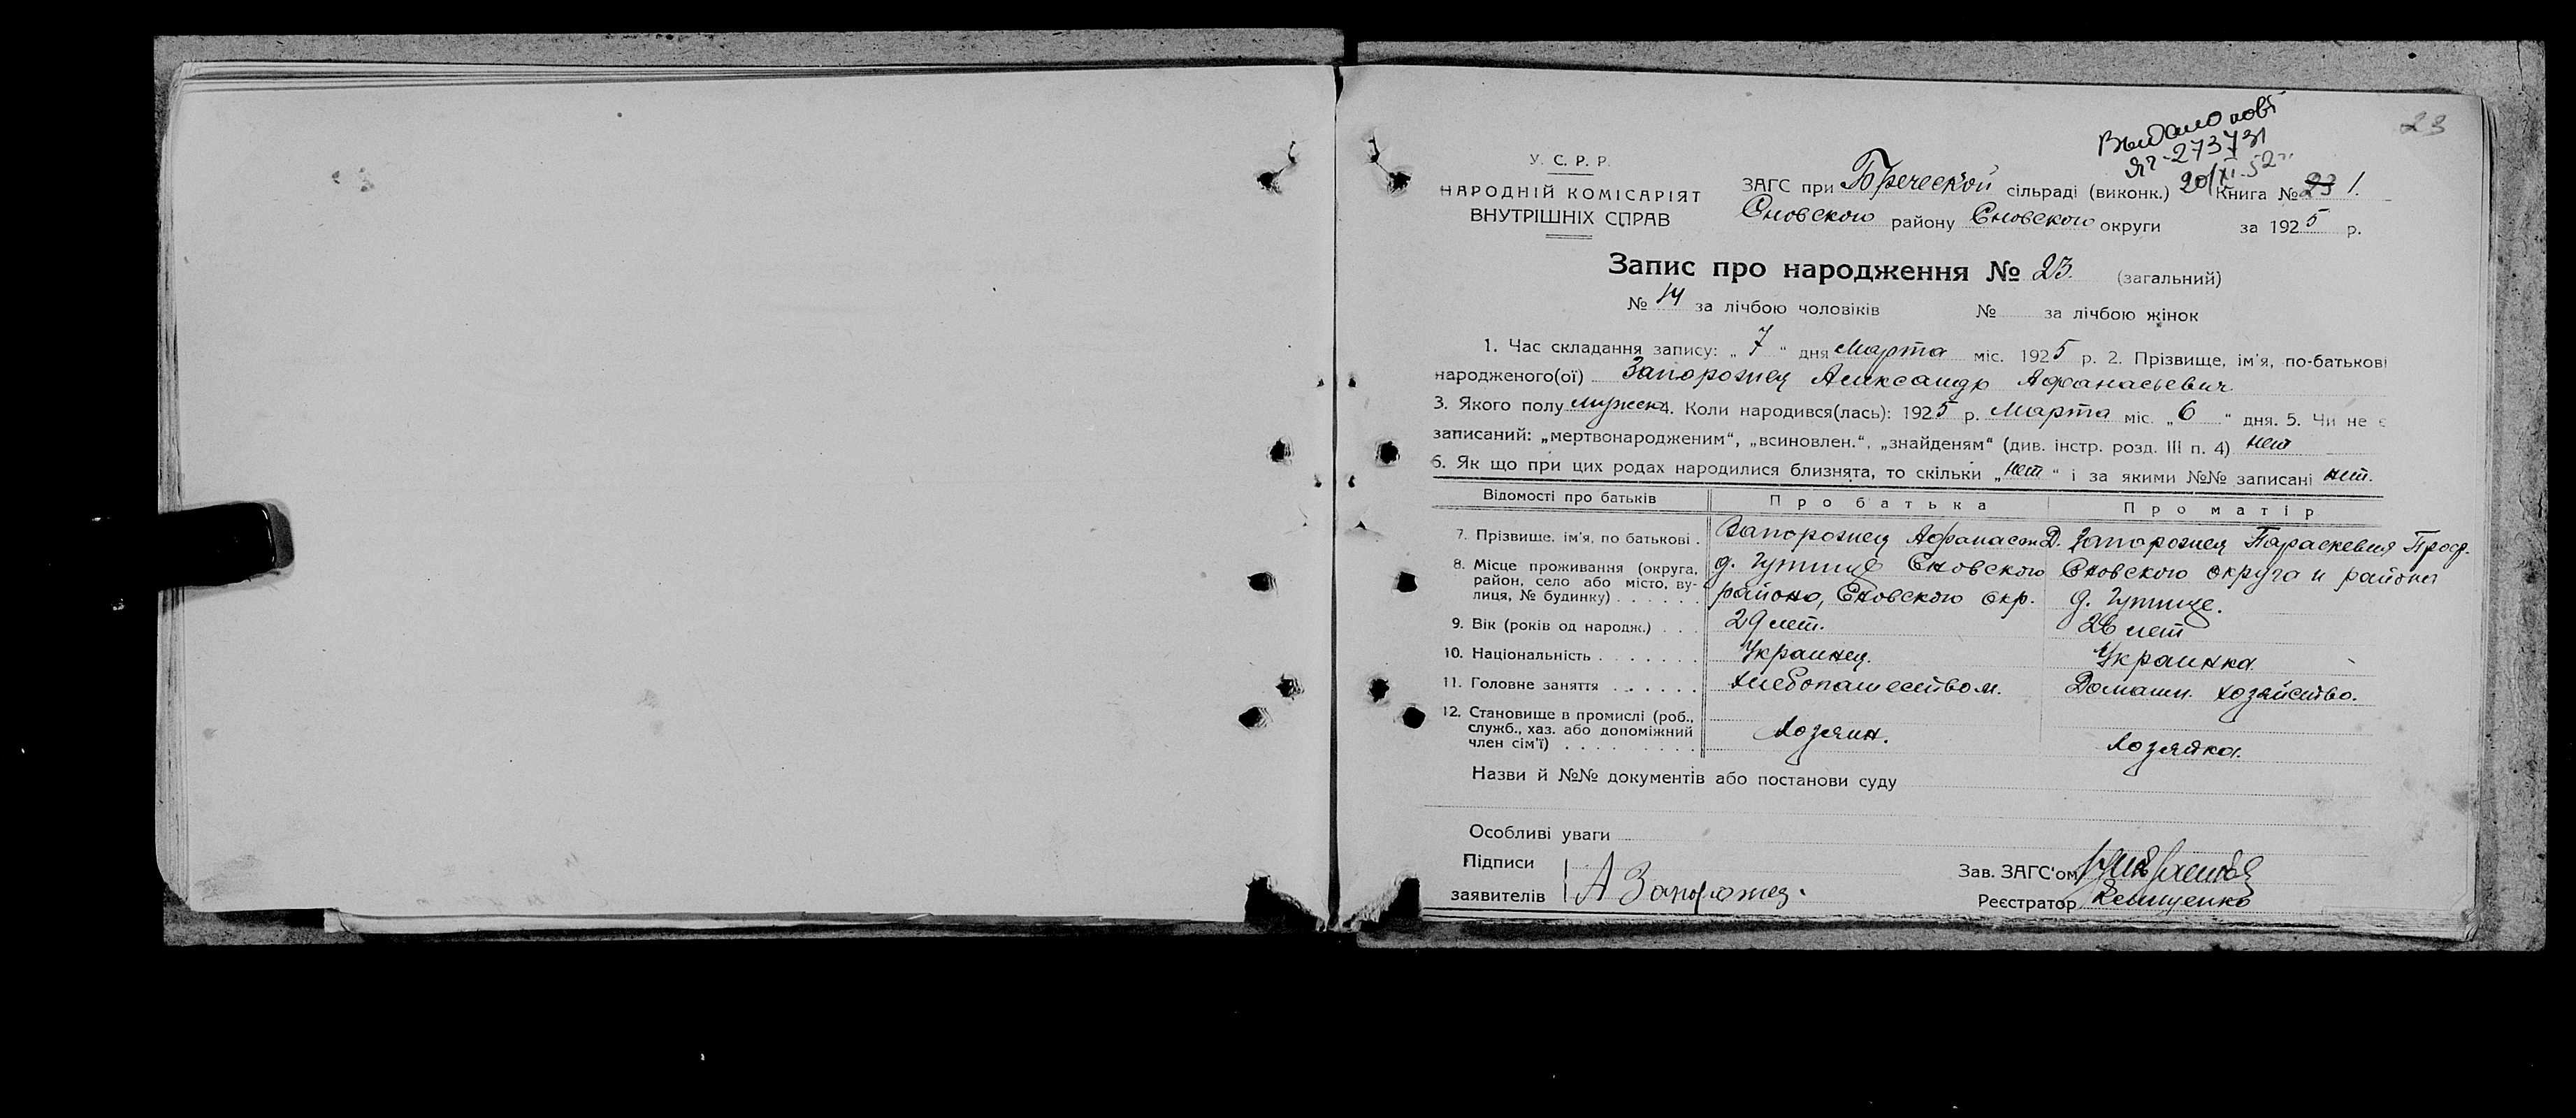 23
Выдано повт
ЯГ-273731
20/XI-52 г.
У. С. Р. Р.
НАРОДНІЙ КОМІСАРІЯТ
ВНУТРІШНІХ СПРАВ
ЗАГС при Бреческой сільраді (виконк.) Книга № 23 1.
Сновского району Сновского округи за 1925 р.
Запис про народження № 23. (загальний)
№ 14 за лічбою чоловіків № за лічбою жінок
1. Час складання запису: „ 7 " дня Марта міс. 1925 р. 2. Прізвище, ім'я, по-батькові
народженого(ої) Запорожец Александр Афанасьевич
3. Якого полу мужск 4. Коли народився(лась): 1925 р. Марта міс. „ 6 " дня. 5. Чи не є
записаний: „мертвонародженим", „всиновлен.", „знайденям" (див. інстр. розд. III п. 4) нет
6. Як що при цих родах народилися близнята, то скільки „ нет " і за якими №№ записані нет.
Відомості про батьків Про батька Про матір
7. Прізвище, ім'я, по батькові . Запорожец Афанасий Д. Запорожец Параскевия Проф.
8. Місце проживання (округа, район, село або місто, вулиця, № будинку) . . . . . . д. Гутище Сновского района, Сновского окр. Сновского округа и района д. Гутище.
9. Вік (років од народж.) . . . 29 лет. 26 лет
10. Національність . . . . . . . Украинец. Украинка.
11. Головне заняття . . . . . . хлебопашеством. Домашн. хозяйство.
12. Становище в промислі (роб., служб., хаз. або допоміжний член сім'ї) . . . . . . . . . Хозяин. Хозяйка.
Назви й №№ документів або постанови суду
Особливі уваги
Підписи
заявителів А Запорожец.
Зав. ЗАГС'ом
Реєстратор